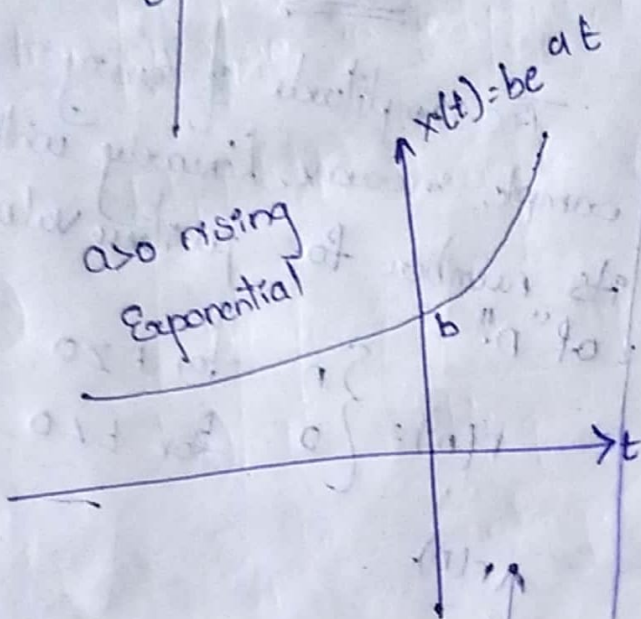 x(t)=be^at
a>o rising
Exponential
b
t